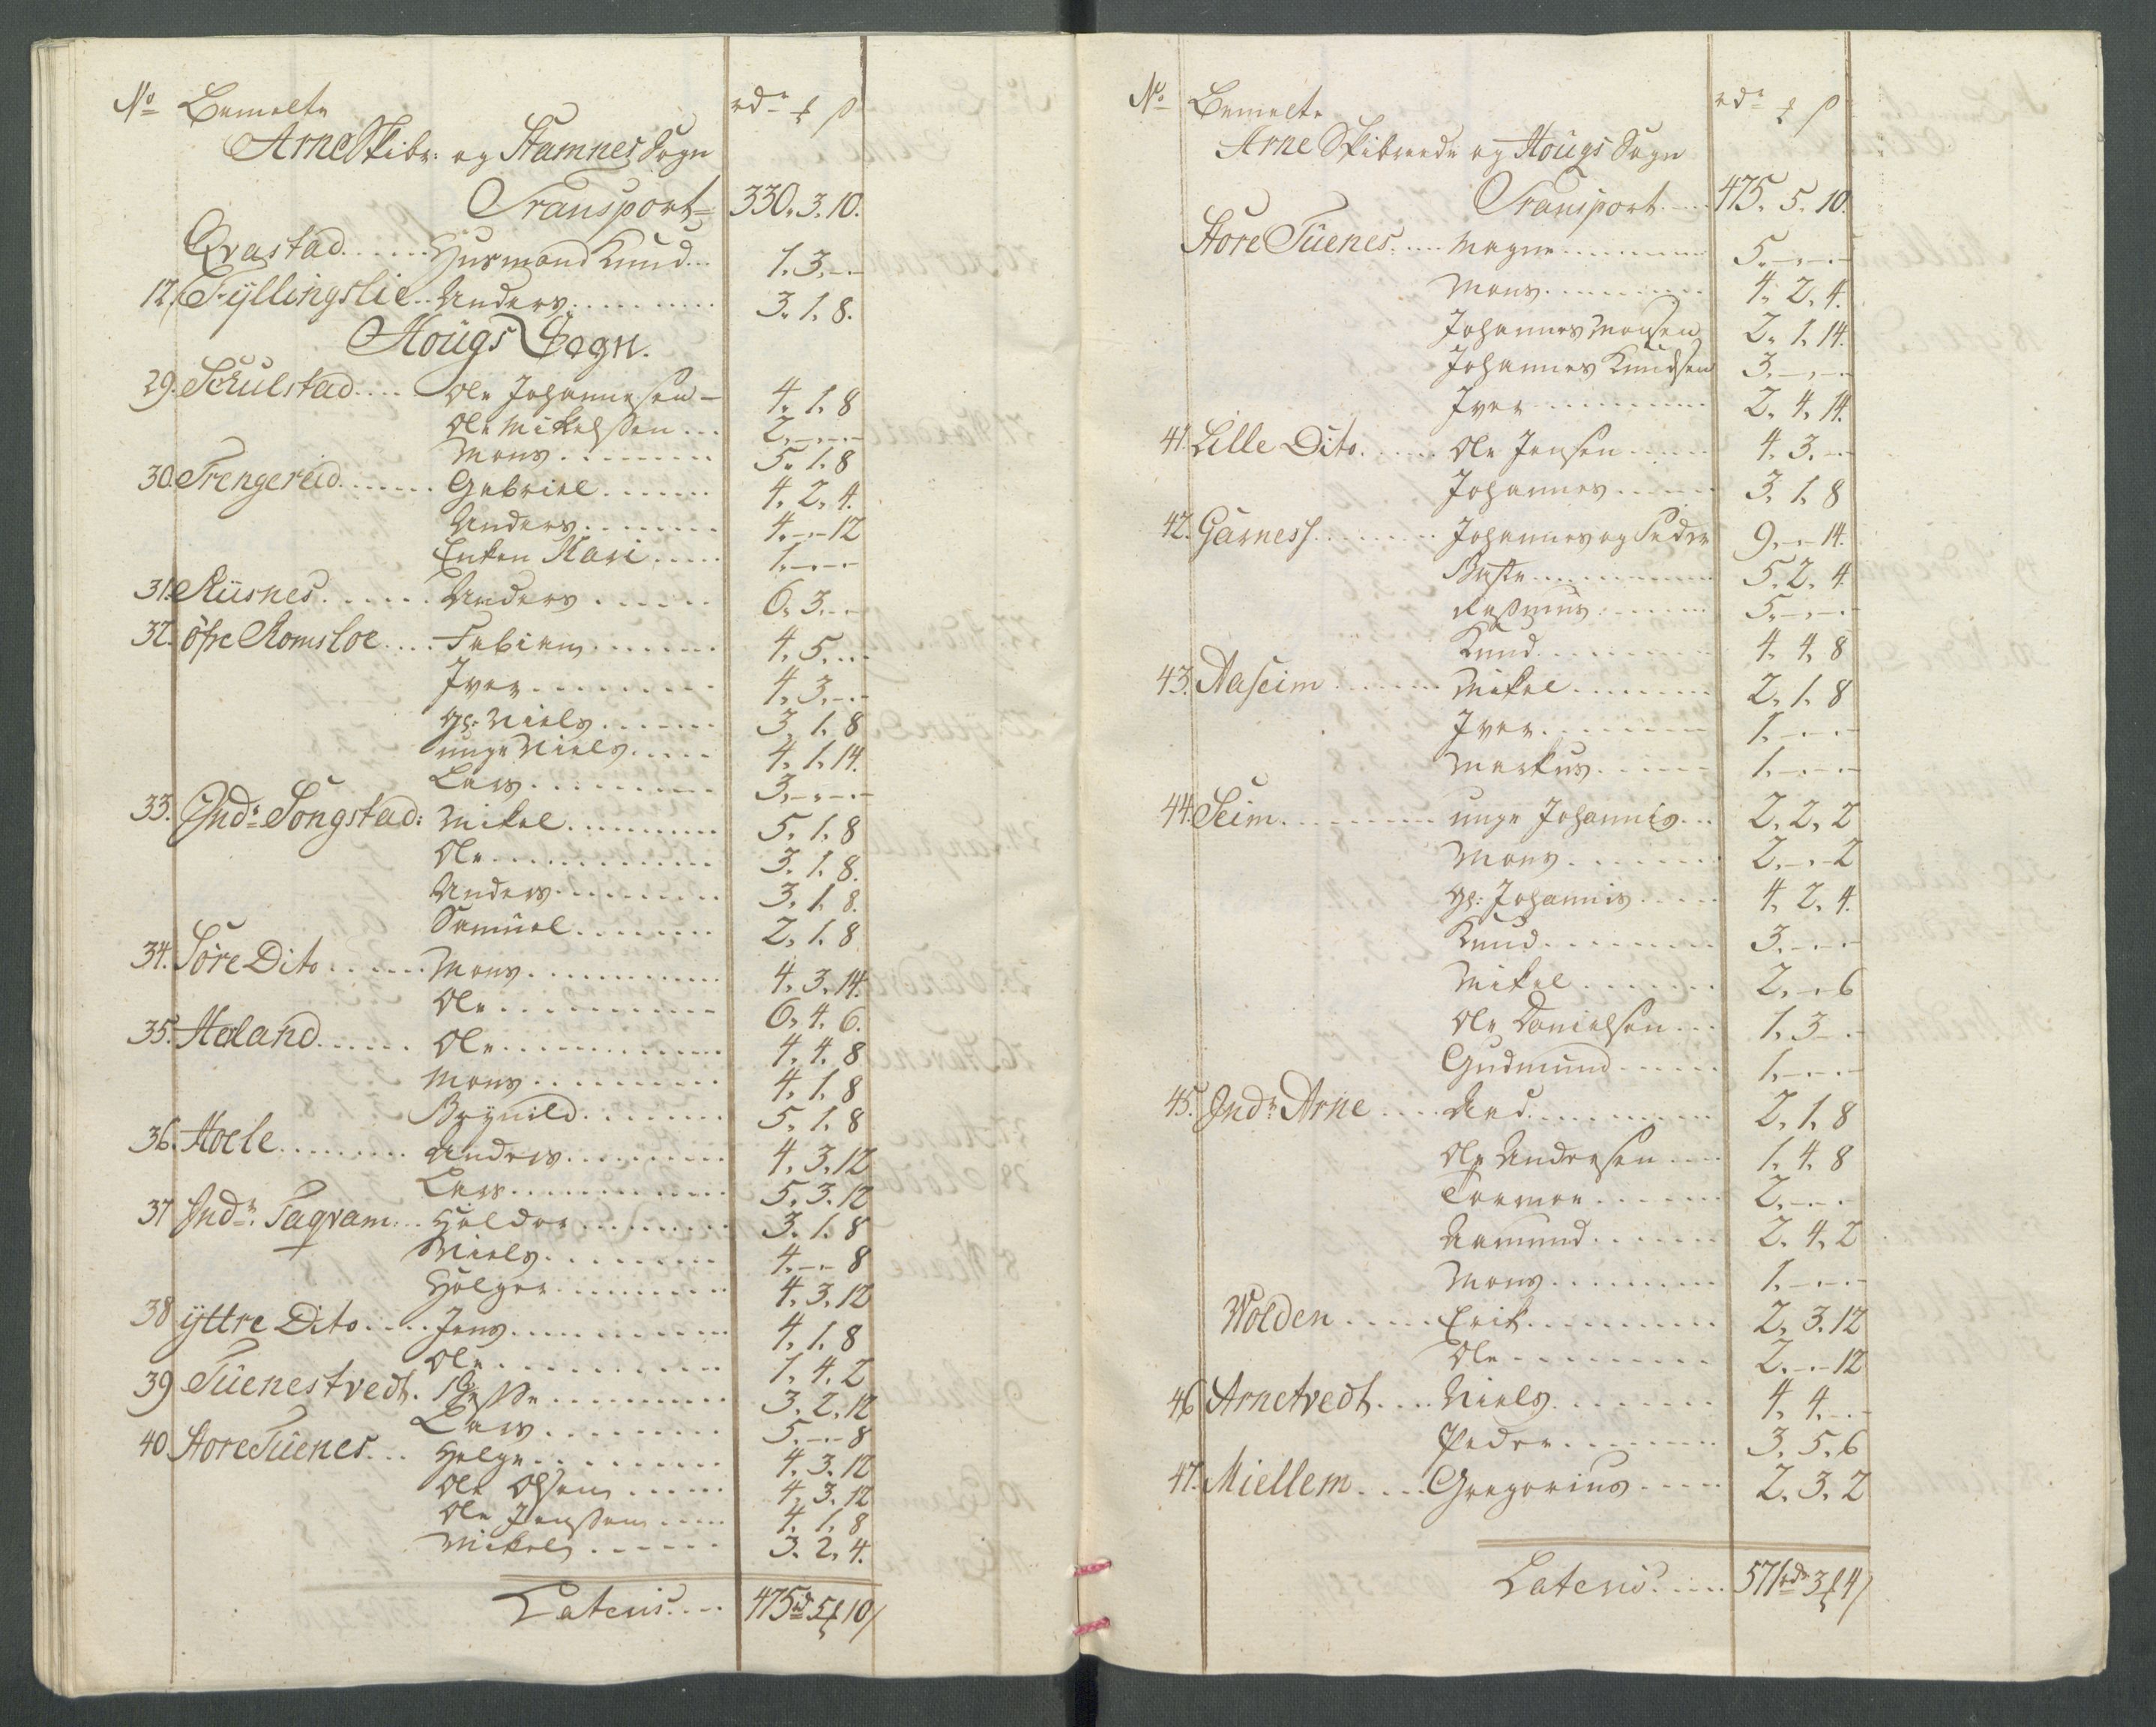 No Bemelte rdr ƒ ß
Arne Skibr: og Stamnes Sogn
Transport 330. 3. 10.
Qvastad ...... Husmand Knud ... 1. 3. -
12. Fyllingslie .. Anders ......... 3. 1. 8.
Hougs Sogn.
29. Schulstad .... Ole Johannesen - 4. 1. 8
Ole Mikelssen ... 2. - . -
Mons ........ 5. 1. 8
30. Trengereid ...... Gabriel ...... 4. 2. 4.
Anders ....... 4. - - 12
Enken Kari ..... 1. - . -
31. Riisnes ...... Anders ...... 6. 3. -
32. öfre Romsloe .... Fabian ....... 4. 5. ...
Iver ......... 4. 3. -
gl: Niels ...... 3. 1. 8
unge Niels ..... 4. 1. 14.
Lars ......... 3. - . -
33. Indr Songstad: Mikel .......... 5. 1. 8
Ole ........... 3. 1. 8.
Anders ........ 3. 1. 8.
Samuel ....... 2. 1. 8
34. Söre Dito ...... Mons ............ 4. 3. 14.
Ole .......... 6. 4. 6.
35. Haland ...... Ole ............ 4. 4. 8
Mons .......... 4. 1. 8
Brynild ....... 5. 1. 8
36. Hoele ........ Anders ......... 4. 3. 12
Lars ........... 5. 3. 12
37 Indr. Taqvam ... Haldor ......... 3. 1. 8
Niels ......... 4. - - 8
Holger ......... 4. 3. 12
38 ÿttre Dito .... Jens ............ 4. 1. 8
Ole ........... 1. 4. 2
39 Tuenestvedt . ......... 3. 2. 12
Lars ......... 5. - - 8
40. Store Tuenes ... Helge ......... 4. 3. 12
Ole Olsen ..... 4. 3. 12
Ole Jenssen .... 4. 1. 8
Mikel ...... 3. 2. 4.
Lateris .... 475 rdr 5 ƒ 10 ß
No Bemelte rdr ƒ ß
Arne Skibreede og Hougs Sogn
Transport .... 475. 5. 10.
Store Tuenes ..... Magne ........ 5. - . -
Mons ......... 4. 2. 4.
Johannes Monsen 2. 1. 14.
Johannes Knudsen 3. - . -
Iver ......... 2. 4. 14.
41. Lille Dito ..... Ole Jensen ..... 4. 3. -
Johannes ...... 3. 1. 8
42. Garness ........ Johannes og Peder 9. - - 14.
Baste .......... 5. 2. 4
Rasmus ....... 5. - . -
Knud ......... 4. 4. 8
43. Aaseim ...... Mikel ....... 2. 1. 8
Iver ......... 1. - . -
Markus ...... 1. - . -
44. Seim ......... unge Johannis ... 2. 2. 2
Mons ........ 2. - - 2
gl: Johannis ..... 4. 2. 4.
Knud ......... 3. - . -
Mikel ....... 2. - . 6
Ole Danielsen ... 1. 3 - .
Gudmund ...... 1. - . -
45. Indr Arne .... Aad .......... 2. 1. 8
Ole Andersen .... 1. 4. 8
Tormoe ...... 2. - . -
Aamund ...... 2. 4. 2
Mons ......... 1. - . -
Wolden ..... Erik .......... 2. 3. 12
Ole ......... 2. - - 12
46 Arnetvedt .... Niels ........ 4. 4. -
Peder ....... 3. 5. 6
47. Miellem .... Gregorius ..... 2. 3. 2
Lateris ..... 571 rdr 3 ƒ 4 ß